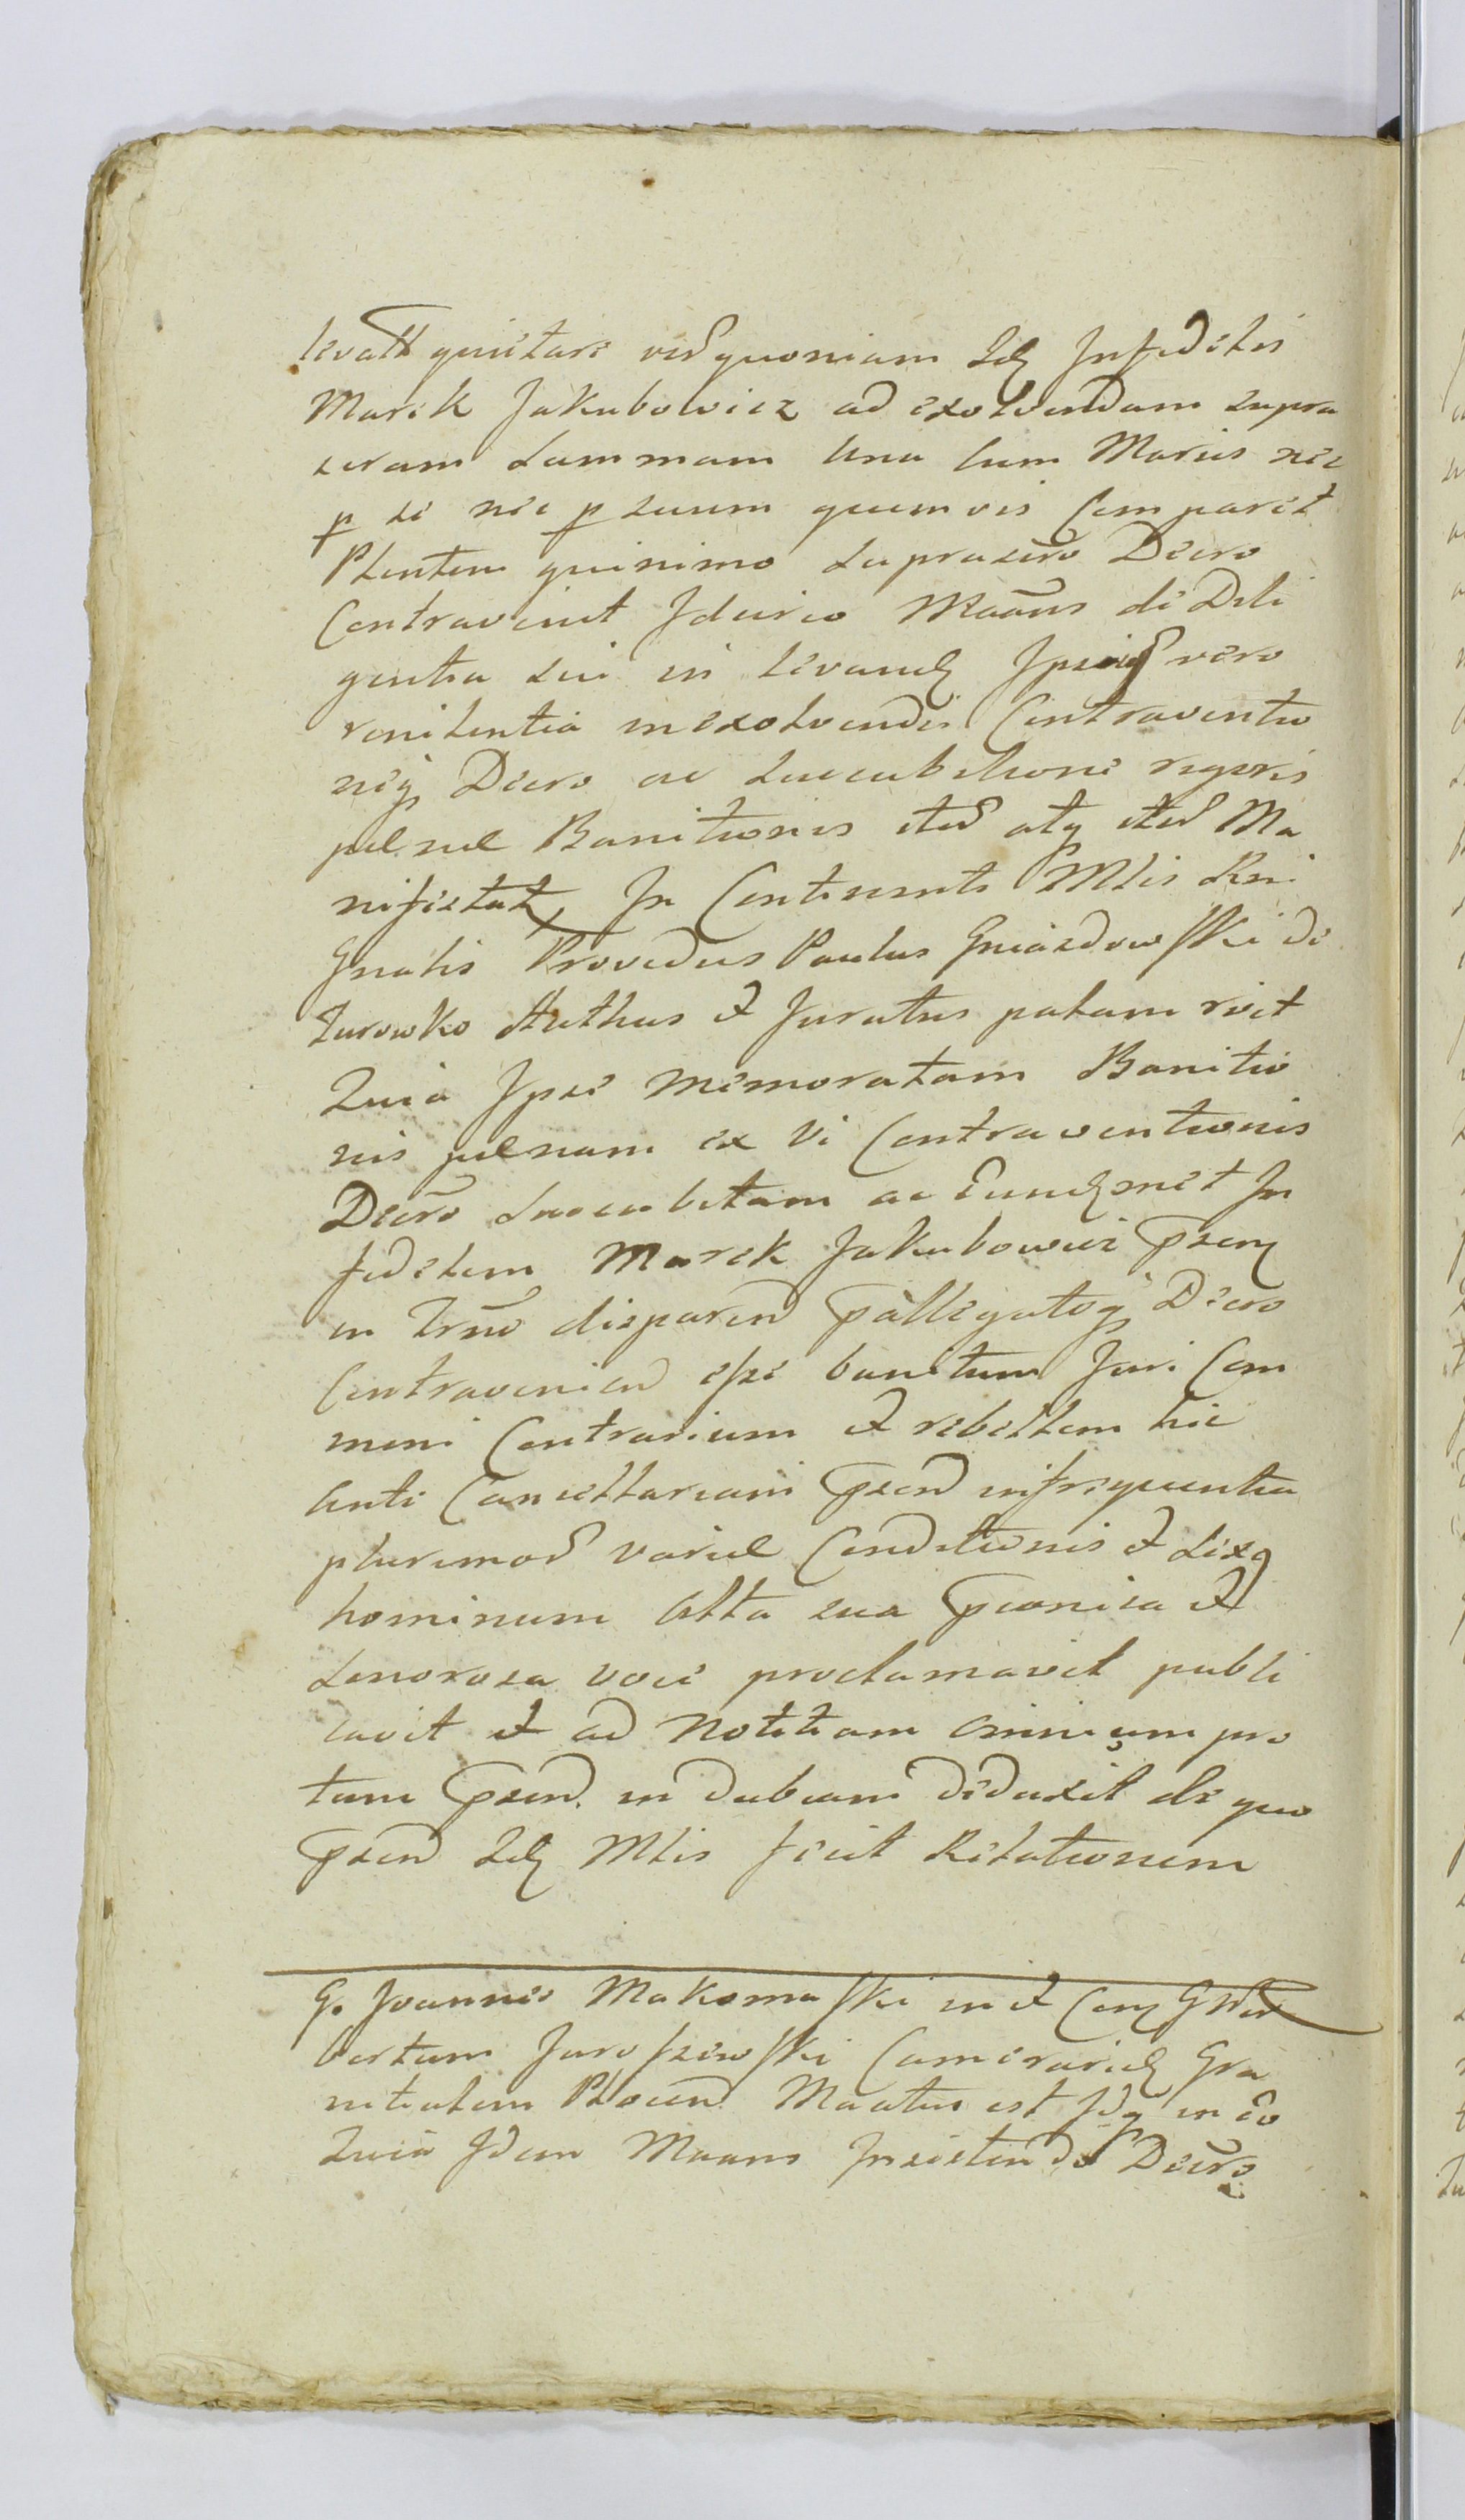 levatt quietare verũ quoniam Idẽ Infidelis
Marek Jakubowicz ad exolvendam supra
scram Summam una Cum Marcis nec
p se nec p suum quemvis Comparet
Plentem quinimo suprascro Decro
Contravenit Idcirco Maans de Dili
gentia sui in levandẽ Ipsius vero
renitentia in exolvendis Contraventio
neq Decro ac succubitione rigoris
penae Banitionis iteũ atq iteũ Ma
nifestat In Continenti Mlis Rni
Gnalis Providus Paulus Gniazdowski de
Zurowko Authus et Juratus palam rec̃t
Quia Ipse memoratam Banitio
nis paenam ex Vi Contraventionis
Decro Succubitam ac Eundẽmet In
fidelem Marek Jakubowicz psenẽ
in Trno disparend pallegatoq Decro
Contraveniend esse banitum Juri Com
muni Contrarium et rebellem hic
Ante Cancellariam psend in frequentia
plurimoũ variae Conditionis et Sexq
hominum Alta sua pconica et
Sonorosa voce proclamavit publi
cavit et ad Notitiam omnium pro
tum psend. in dubiam deduxit de quo
psend Idẽ Mlis fecit Relationem
G. Joannes Makomaski in et Conẽ G Adal
bertum Jaroszewski Camerariũ Gra
nitialem Plocen Maatus est Idq in Eo
Quia Idem Maans Insistendo Decro